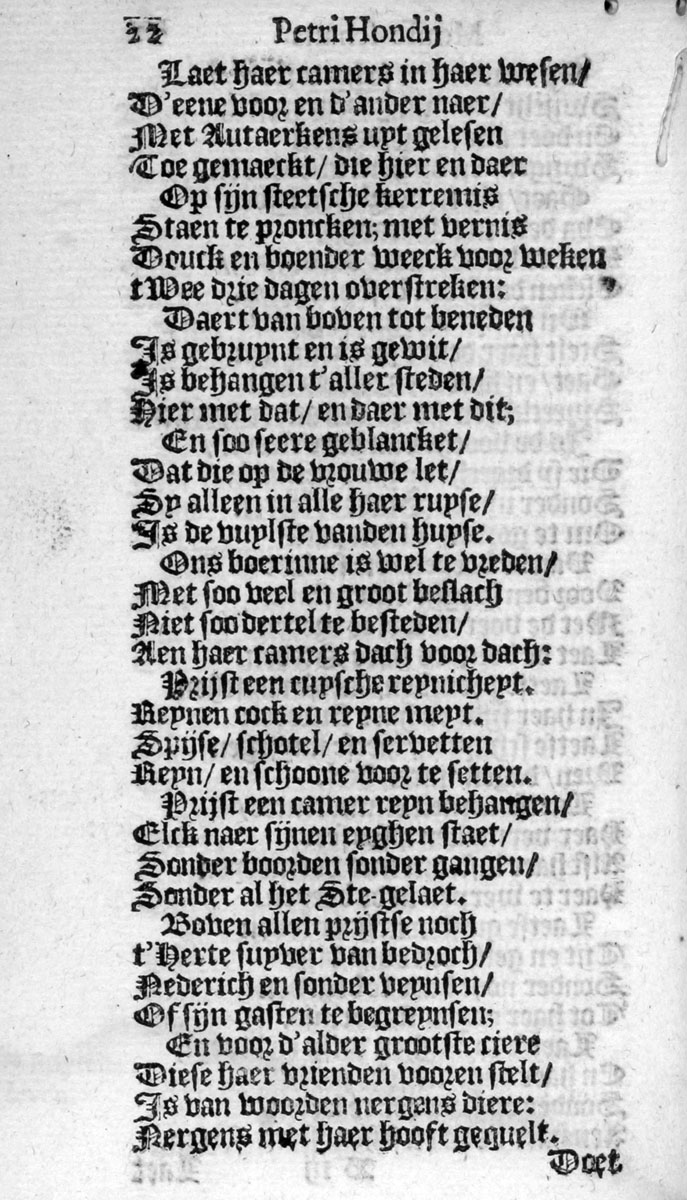 22 Petri Hondij
Laet haer camers in haer wesen/
D'eene voor en d'ander naer/
Met Autaerkens uyt gelesen
Toe gemaeckt/ die hier en daer
Op sijn steetsche kerremis
Staen te proncken; met vernis
Douck en boender weeck voor weken
tWee drie dagen overstreken:
Daert van boven tot beneden
Is gebruynt en is gewit/
Is behangen t'aller steden/
Hier met dat/ en daer met dit;
En soo seere geblancket/
Dat die op de vrouwe let/
Sy alleen in alle haer ruyse/
Is de vuylste vanden huyse.
Ons boerinne is wel te vreden/
Met soo veel en groot beslach
Niet soo dertel te besteden/
Aen haer camers dach voor dach:
Prijst een cuysche reynicheyt.
Reynen cock en reyne meyt.
Spijse/ schotel/ en servetten
Reyn/ en schoone voor te setten.
Prijst een camer reyn behangen/
Elck naer sijnen eyghen staet/
Sonder boorden sonder gangen/
Sonder al het Ste-gelaet.
Boven allen prijstse noch
t'Herte suyver van bedroch/
Nederich en sonder veynsen/
Of sijn gasten te begreynsen;
En voor d'alder grootste ciere
Diese haer vrienden vooren stelt/
Is van woorden nergens diere:
Nergens met haer hooft gequelt.
Doet